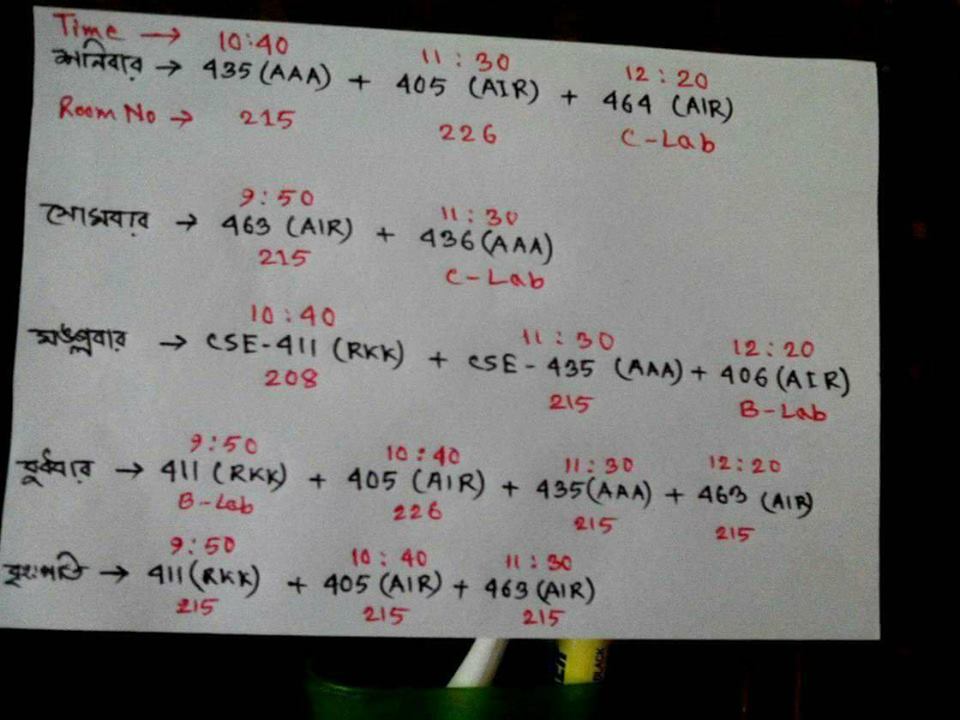 Time → 10:40 11:30 12:20
শনিবার → 435 (AAA) + 405 (AIR) + 464 (AIR)
Room No → 215 226 C-Lab
9:50 11:30
সোমবার → 463 (AIR) + 436 (AAA)
215 C-Lab
10:40 11:30 12:20
মঙ্গলবার → CSE-411 (RKK) + CSE-435 (AAA) + 406 (AIR)
208 215 B-Lab
9:50 10:40 11:30 12:20
বুধবার → 411 (RKK) + 405 (AIR) + 435 (AAA) + 463 (AIR)
B-Lab 226 215 215
9:50 10:40 11:30
বৃহঃপতি → 411 (RKK) + 405 (AIR) + 463 (AIR)
215 215 215
BLACK